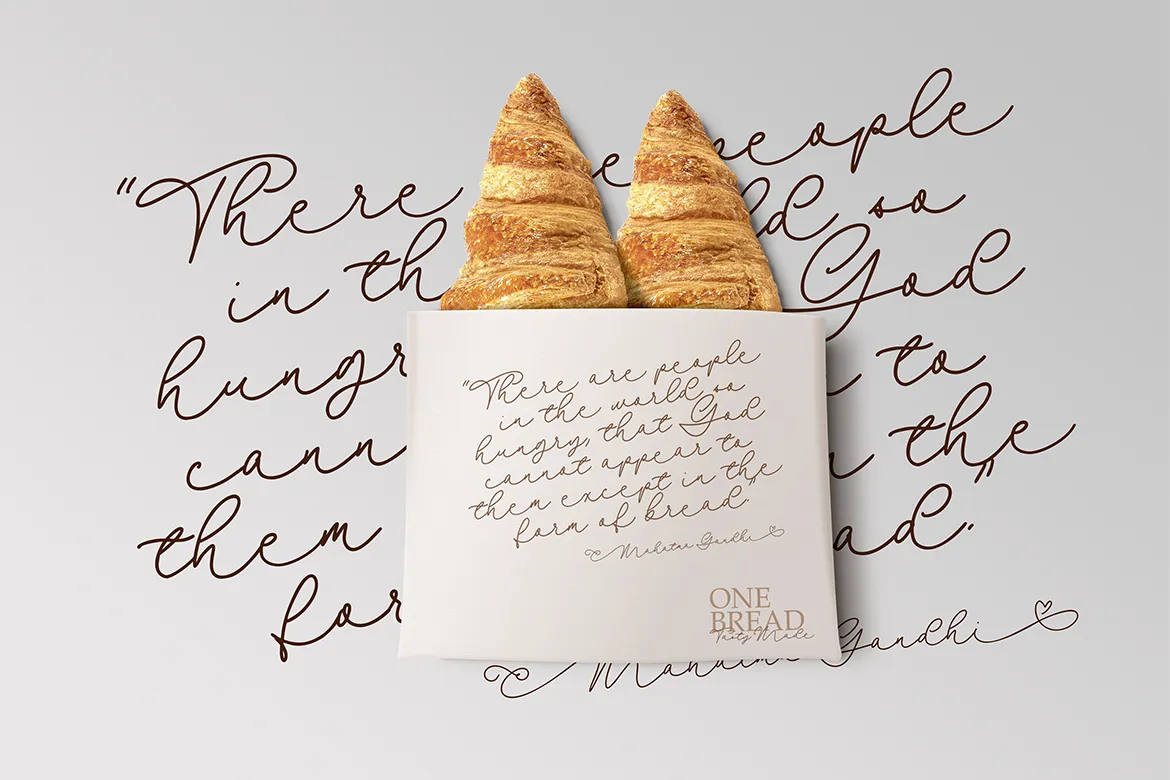 “There people
in so
God
to
them the

Gandhi
“There are people
in the world so
hungry, that God
cannot appear to
them except in the
form of bread.”
Mahatma Gandhi
ONE
BREAD
Tasty Made